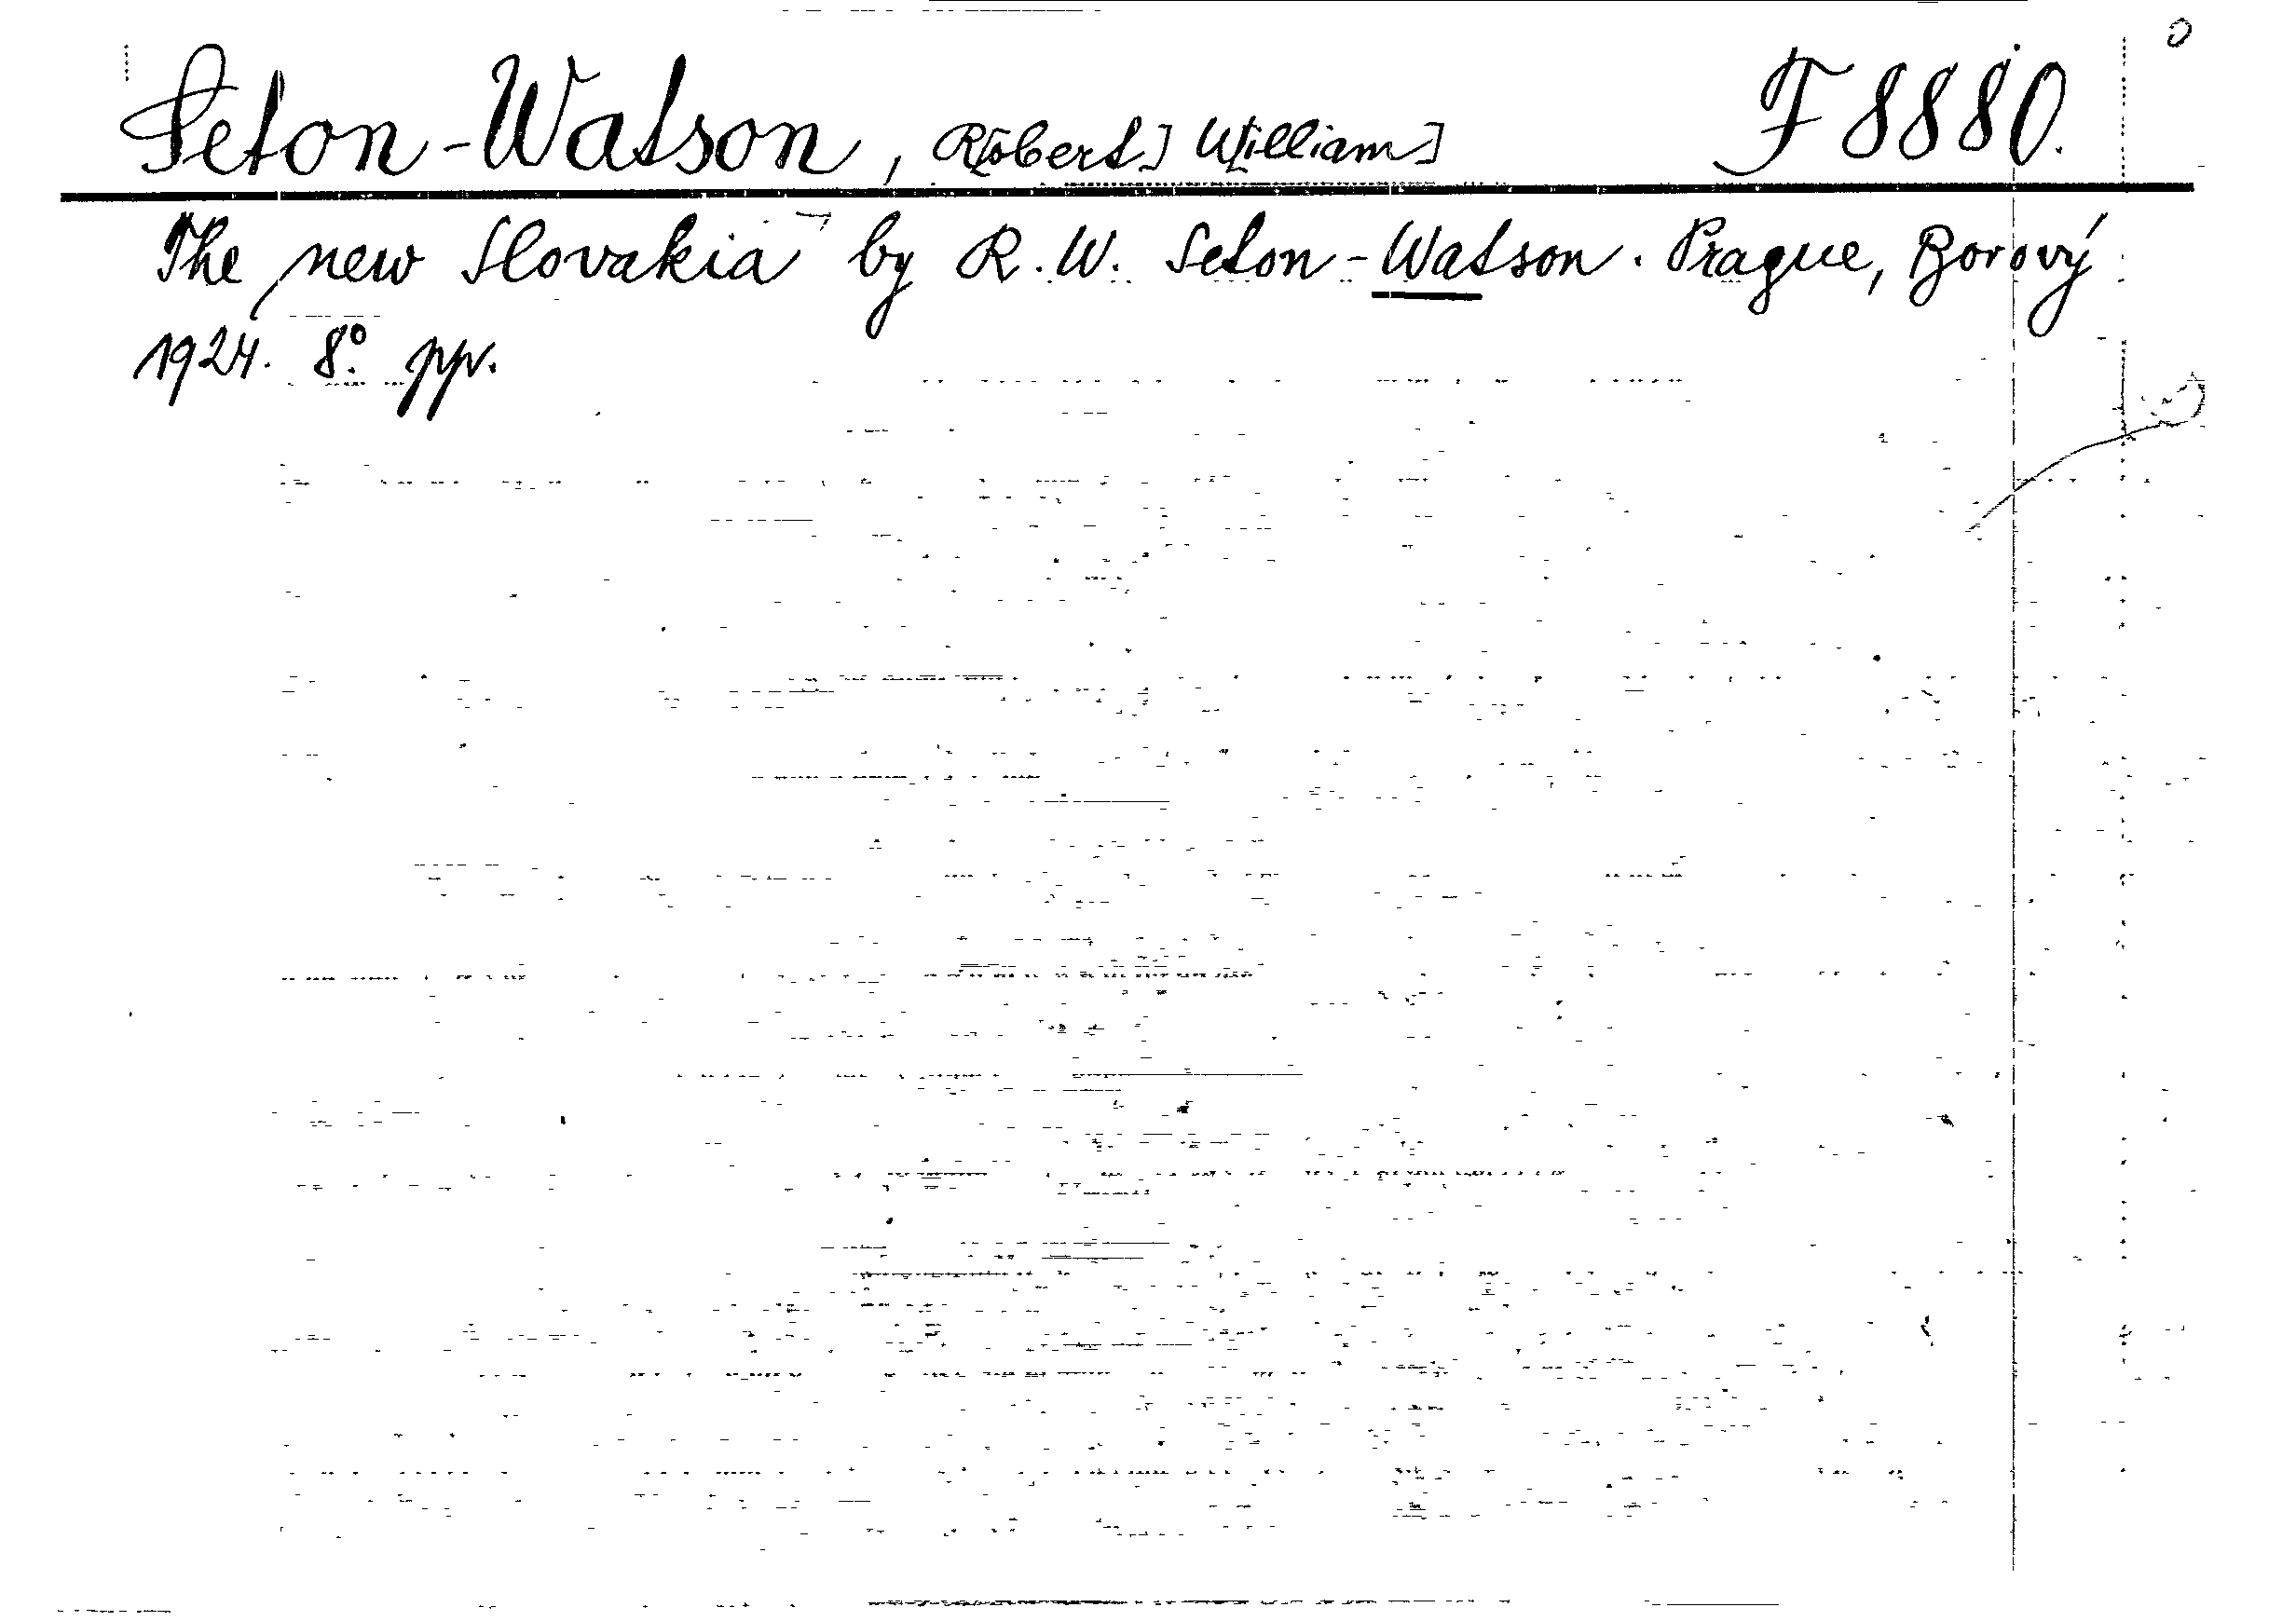 Seton-Watson, R[obert] W[illiam] F 8880.
The new Slovakia by R. W. Seton-Watson. Prague, Borový
1924. 8° pp.